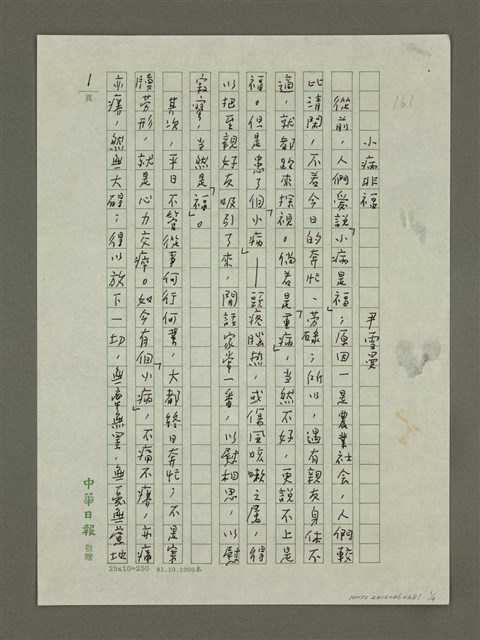 小病非福
尹雪曼
從前，人們愛說「小病是福」；原因一是農業社會，人們較
比清閒，不若今日的奔忙、勞碌；所以，遇有親友身体不
適，就都跑來探視。倘若是「重病」，當然不好，更說不上是
福。但是患了個「小病」——頭疼腦熱，或傷風咳嗽之屬，得
以把至親好友吸引了來，閒話家常一番，以慰相思，以慰
寂寥，當然是「福」。
其次，平日不管從事何行何業，大都終日奔忙；不是案
牘勞形，就是心力交瘁。如今有個「小病」，不痛不癢，亦痛
亦癢，然無大碍；得以放下一切，無牽無罣，無憂無慮地
1
頁
中華日報 敬贈
25x10=250 81.10.1000本
161
NMTL20120060281 1/4